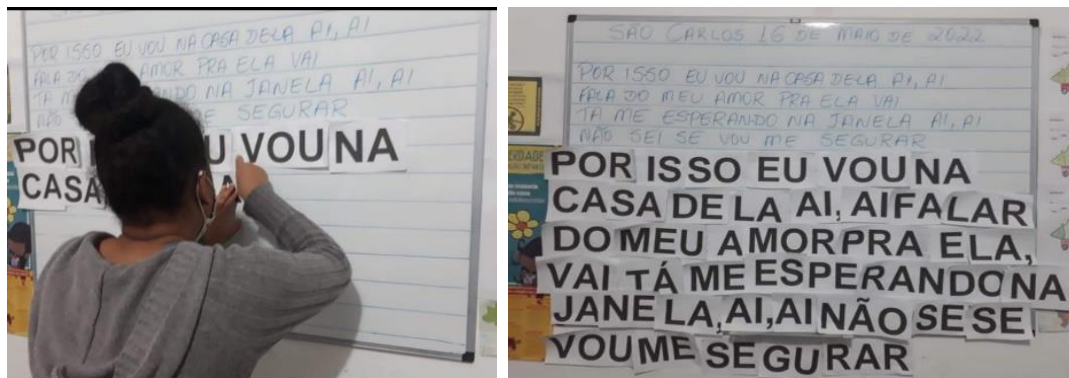 POR ISSO EU VOU NA CASA DELA AI, AI
AMOR PRA ELA VAI
NDO NA JANELA AI, AI
NÃO E SEGURAR
POR U VOU NA
CASA
SÃO CARLOS 16 DE MAIO DE 2022
POR ISSO EU VOU NA CASA DELA AI, AI
FALA DO MEU AMOR PRA ELA VAI
TA ME ESPERANDO NA JANELA AI, AI
NÃO SEI SE VOU ME SEGURAR
POR ISSO EU VOU NA
CASA DE LA AI, AI FALAR
DO MEU AMOR PRA ELA,
VAI TÁ ME ESPERANDO NA
JANELA, AI, AI NÃO SE SE,
VOU ME SEGURAR